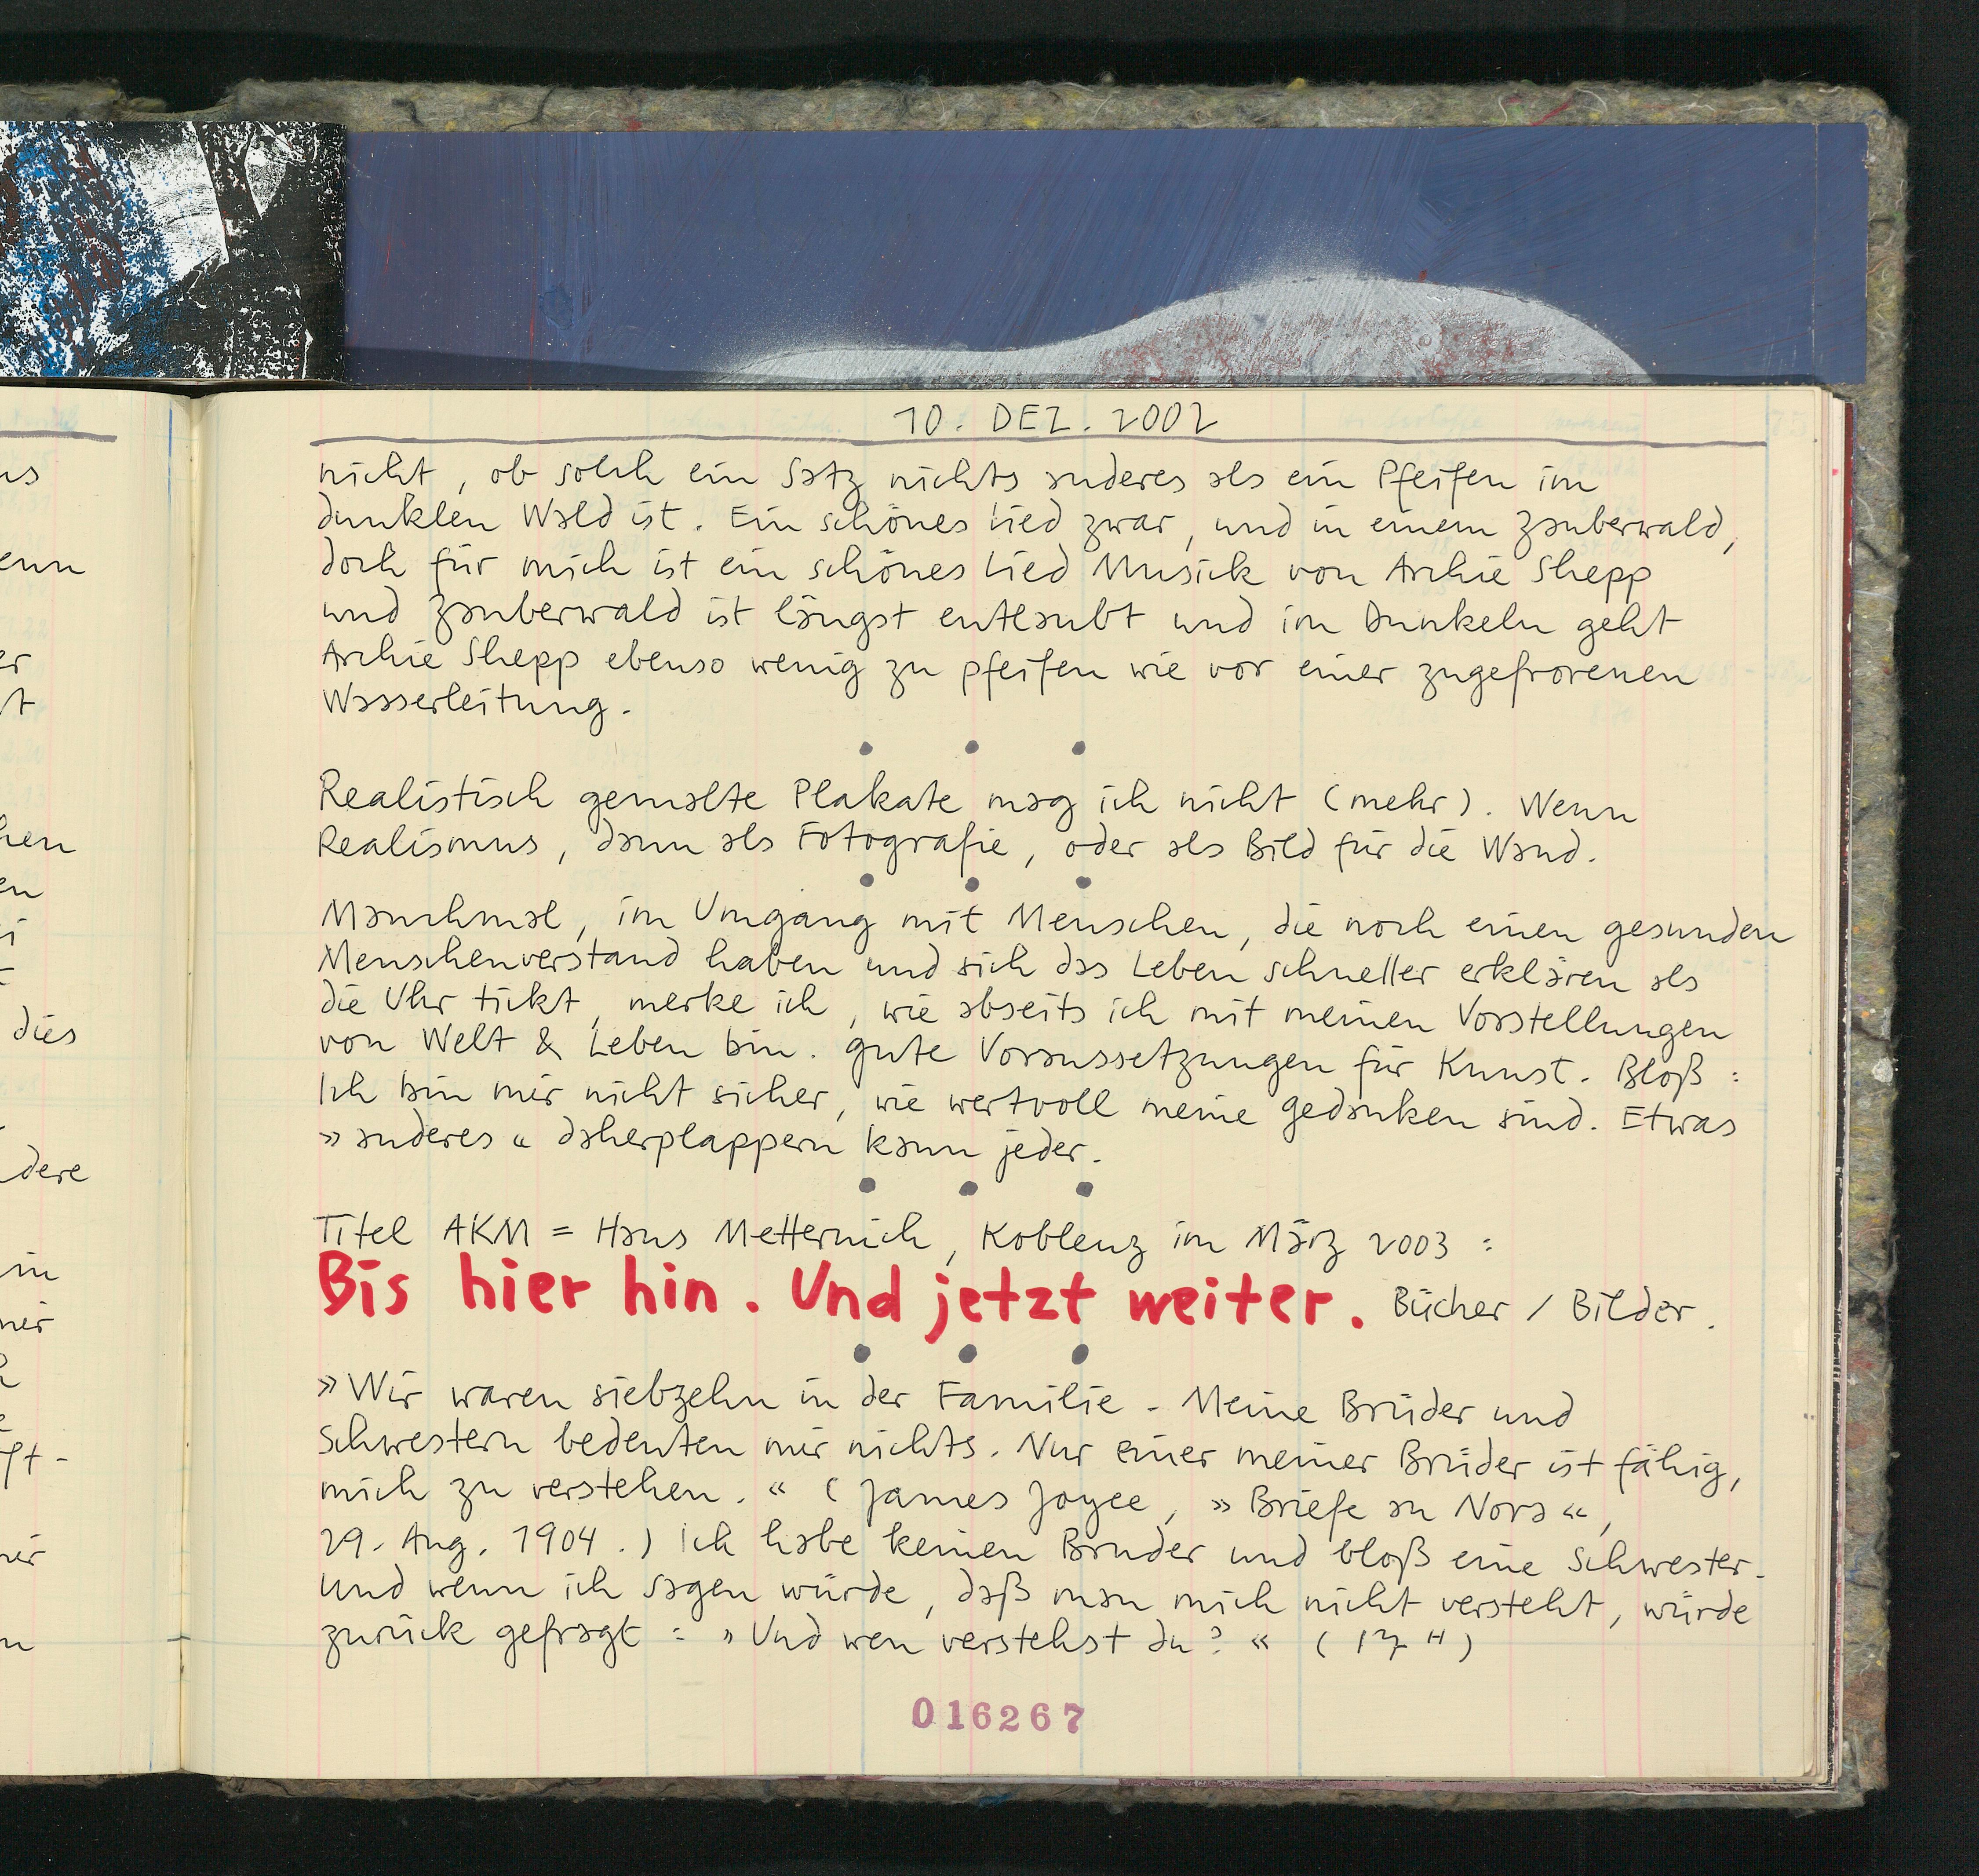 10. DEZ. 2002
nicht, ob solch ein Satz nichts anderes als ein Pfeifen im
dunklen Wald ist. Ein schönes Lied zwar, und in einem Zauberwald,
doch für mich ist ein schönes Lied Musick von Archie Shepp
und Zauberwald ist längst entlaubt und im Dunkeln geht
Archie Shepp ebenso wenig zu pfeifen wie vor einer zugefrorenen
Wasserleitung.
Realistisch gemalte Plakate mag ich nicht (mehr). Wenn
Realismus, dann als Fotografie, oder als Bild für die Wand.
Manchmal, im Umgang mit Menschen, die noch einen gesunden
Menschenverstand haben und sich das Leben schneller erklären als
die Uhr tickt, merke ich, wie abseits ich mit meinen Vorstellungen
von Welt & Leben bin. Gute Voraussetzungen für Kunst. Bloß:
Ich bin mir nicht sicher, wie wertvoll meine Gedanken sind. Etwas
»anderes« daherplappern kann jeder.
Titel AKM = Haus Metternich, Koblenz im März 2003:
Bis hier hin. Und jetzt weiter. Bücher / Bilder.
»Wir waren siebzehn in der Familie. Meine Brüder und
Schwestern bedeuten mir nichts. Nur einer meiner Brüder ist fähig,
mich zu verstehen.« (James Joyce, »Briefe an Nora«,
29. Aug. 1904.) Ich habe keinen Bruder und bloß eine Schwester.
Und wenn ich sagen würde, daß man mich nicht versteht, würde
zurück gefragt: »Und wen verstehst du?«
016267
dies